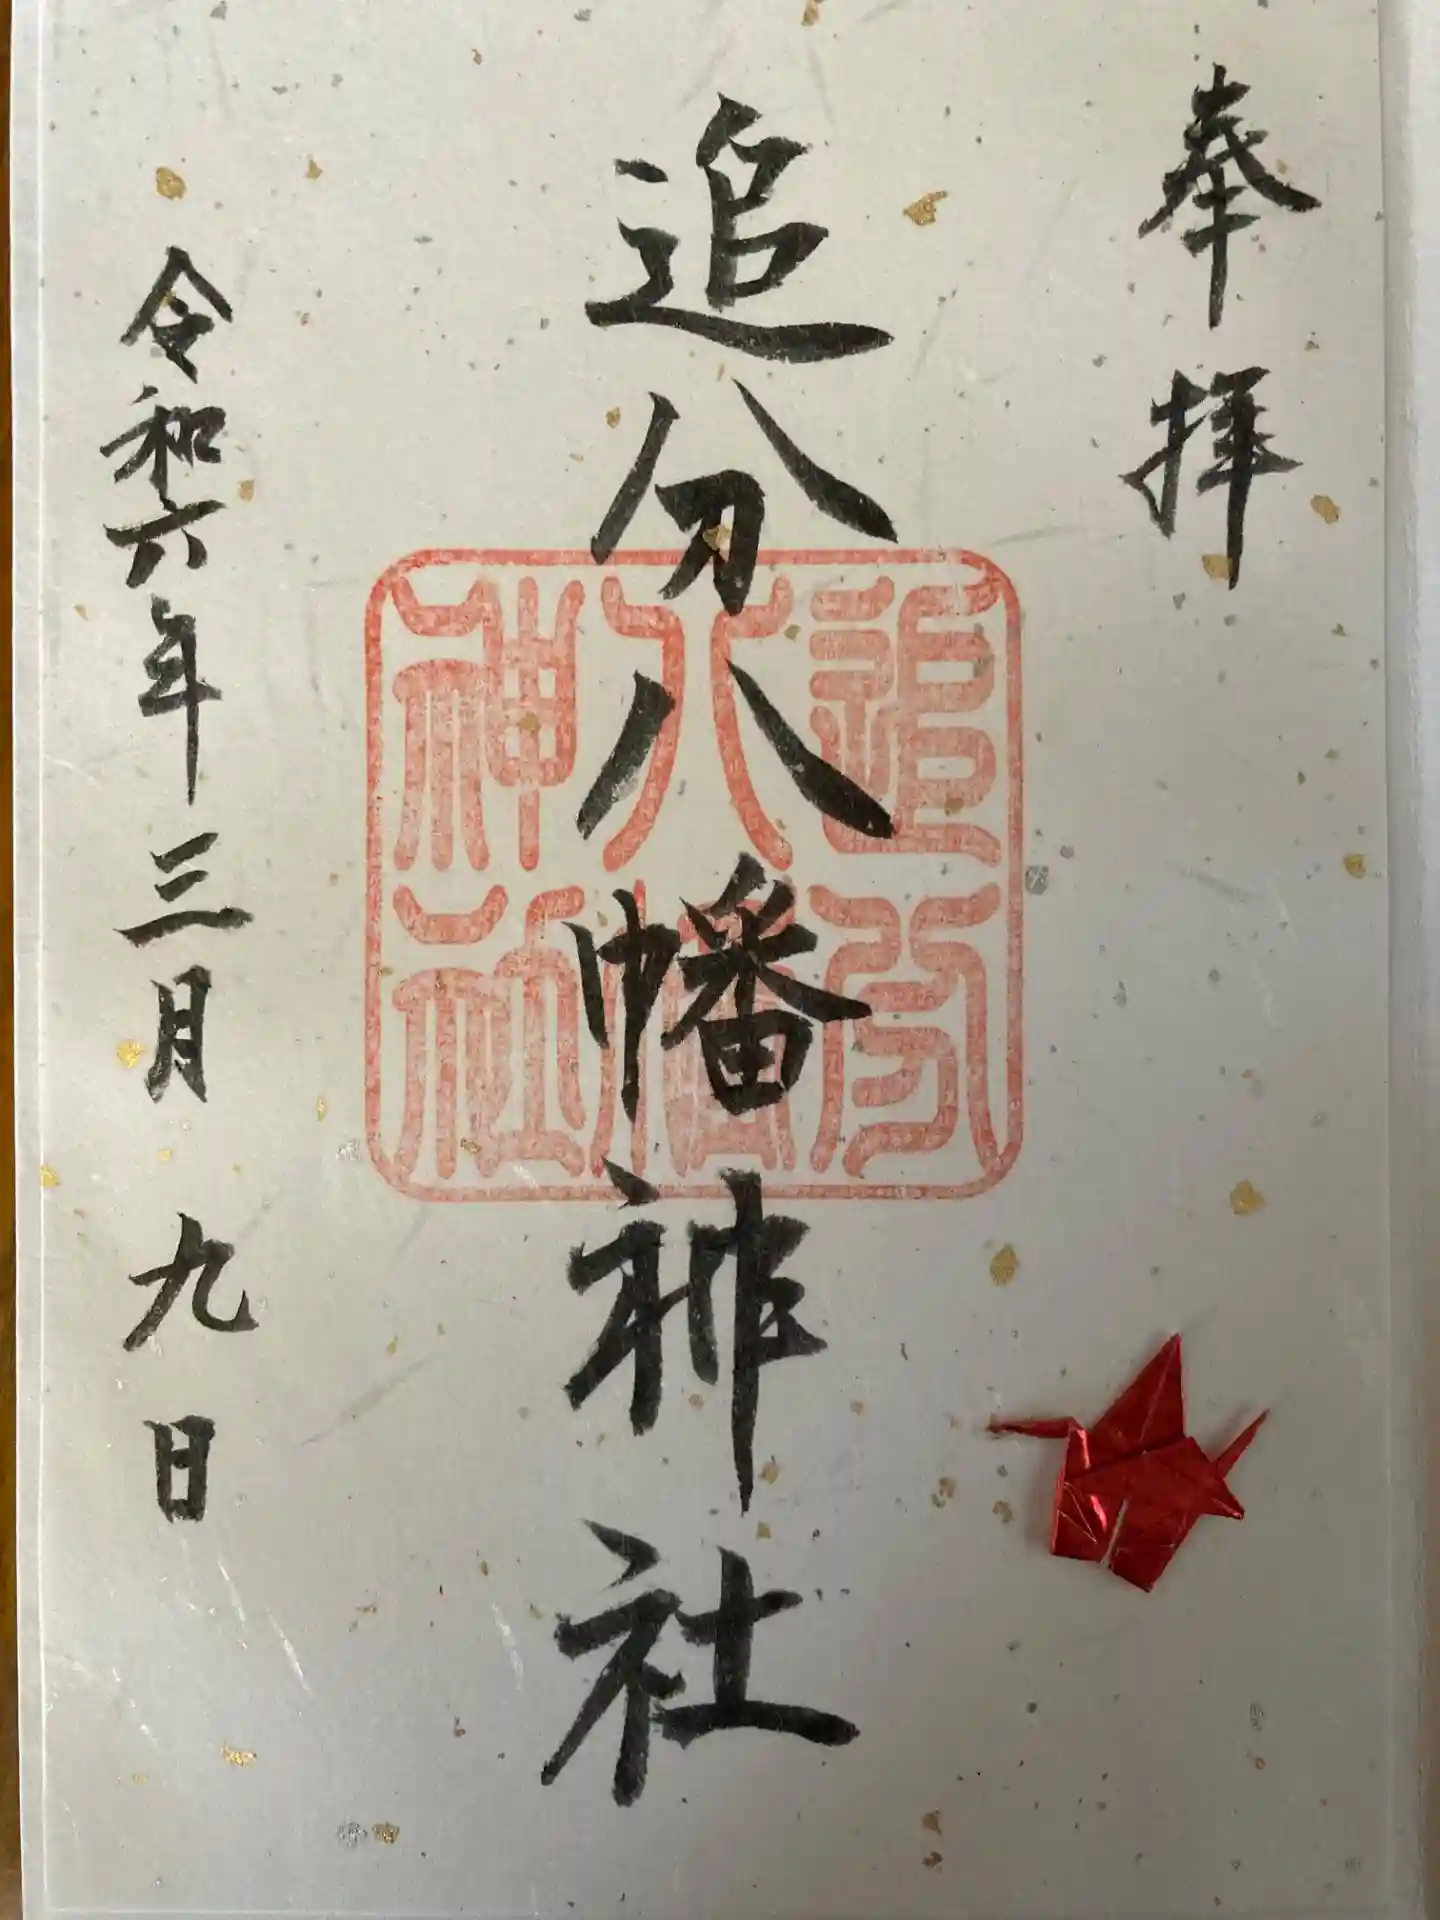 奉拝
追分八幡神社
追分
八幡
神社
令和六年三月九日